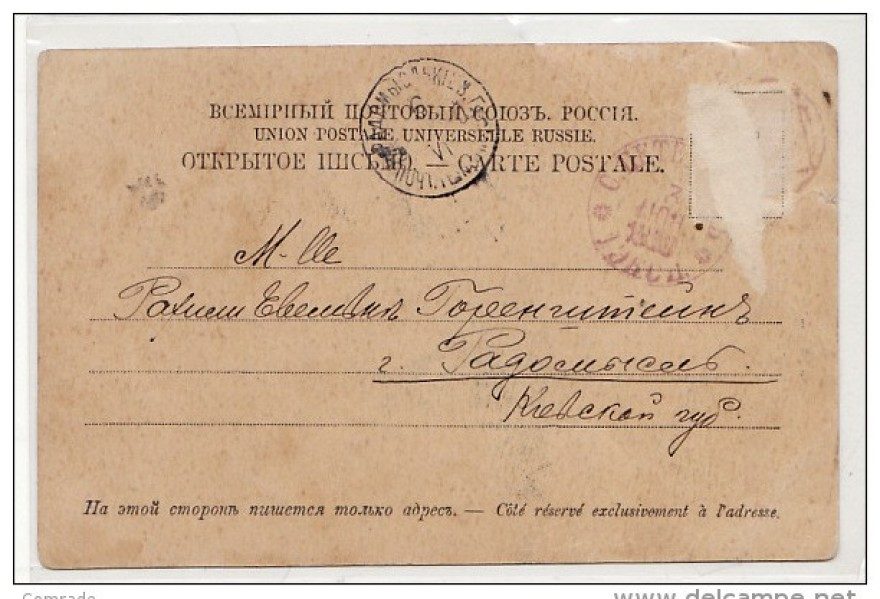 ВСЕМІРНЫЙ ПОЧТОВЫЙ СОЮЗЪ. РОССІЯ.
UNION POSTALE UNIVERSELLE RUSSIE.
ОТКРЫТОЕ ПИСЬМО — CARTE POSTALE.
M-lle
Рахили Горенштейнъ
г. Радомысль.
Кіевской губ.
На этой сторонѣ пишется только адресъ. — Côté réservé exclusivement à l'adresse.
Comrade
www.delcampe.net